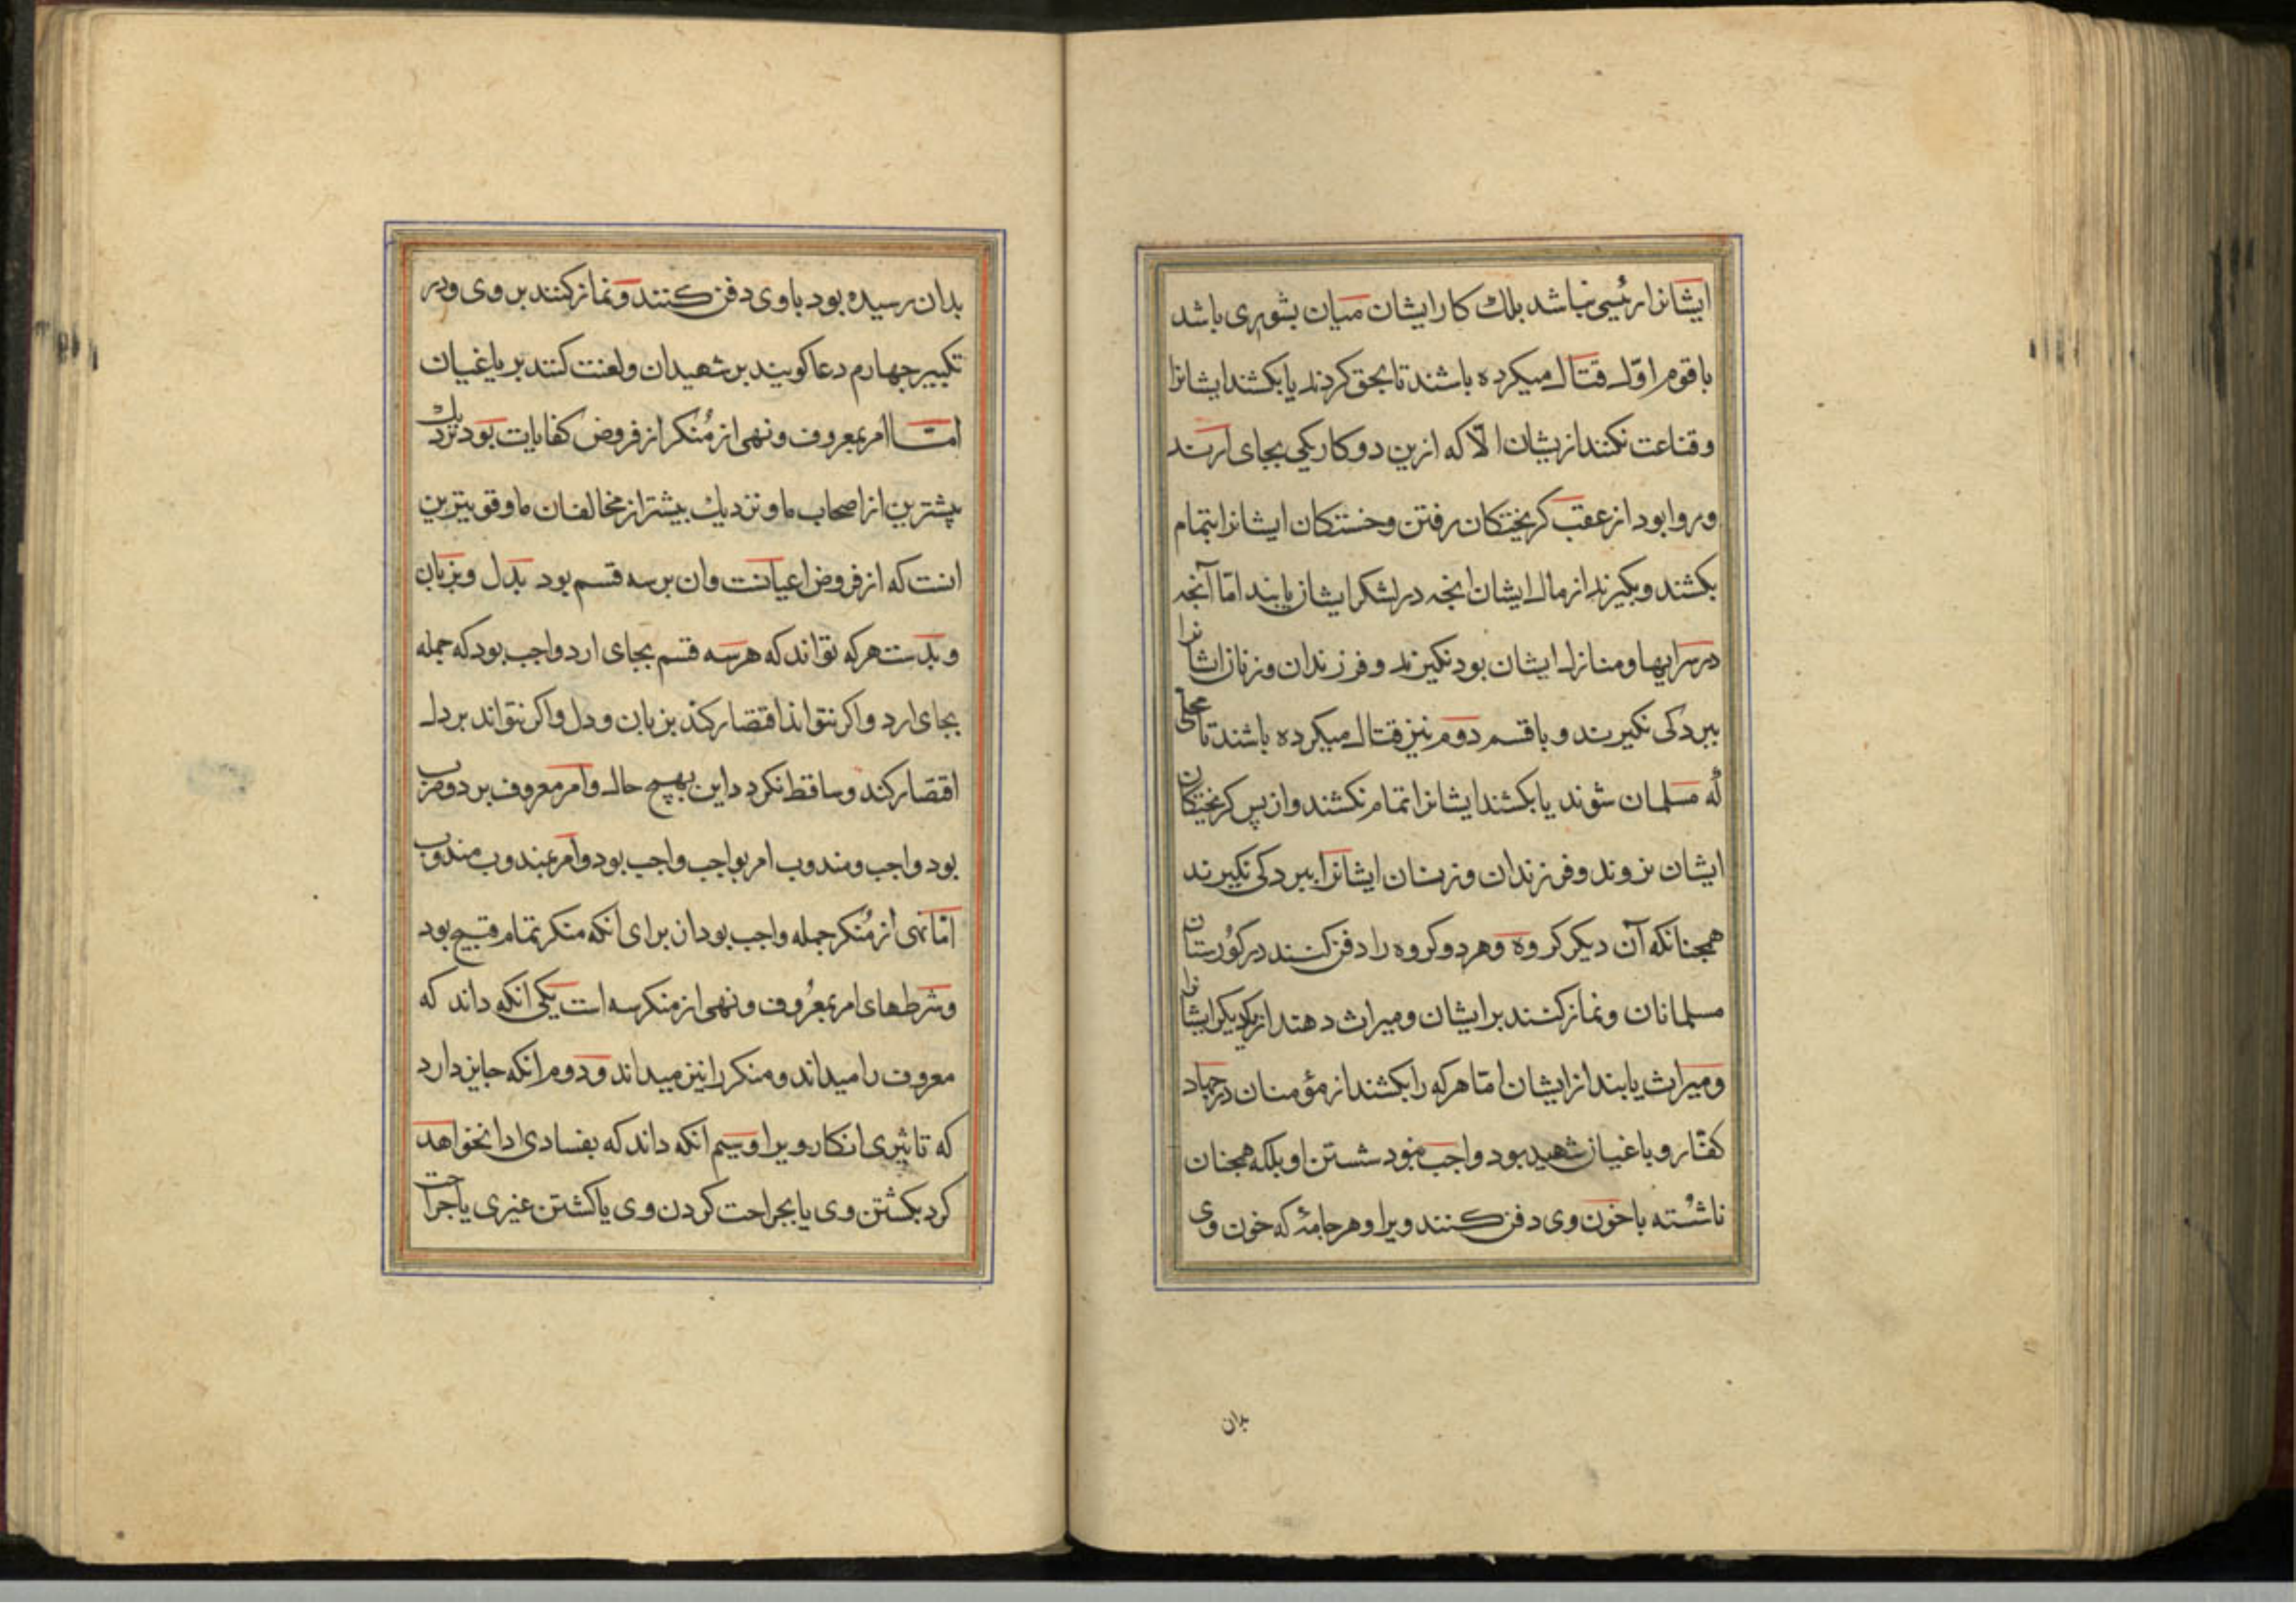 ایشانرا رئیسی نباشد بلك كار ایشان میان بشوری باشد
با قوم اوّل قتال میكرده باشند تا بحق كردند یا بكشند ایشانرا
و قناعت نكنند ازیشان الّا كه ازین دو كار یكی بجای ارند
و روا بود از عقب كریختكان رفتن و خستكان ایشانرا بتمام
بكشند و بكیرند از مال ایشان انجه در لشكر ایشان یابند امّا آنجه
در سرایها و منازل ایشان بود نكیرند و فرزندان و زنان ایشانرا
ببردكی نكیرند و با قسم دوم نیز قتال میكرده باشند تا بحلی
كُه مسلمان شوند یا بكشند ایشانرا تمام نكشند و از پس كریختكان
ایشان نروند و فرزندان و زنان ایشانرا ببردكی نكیرند
همجنانكه آن دیكر كروه و هر دو كروه را دفن كنند در كورستان
مسلمانان و نماز كنند بر ایشان و میراث دهند از یكدیكر ایشانرا
و میراث یابند از ایشان امّا هر كه را بكشند از مؤمنان در جهاد
كفّار و باغیان شهید بود واجب نبود شستن او بلكه همجنان
ناشُسته با خون وی دفن كنند ویرا و هر جامۀ كه خون وی
بدان
بدان رسیده بود با وی دفن كنند و نماز كنند بر وی و در
تكبیر جهارم دعا كویند بر شهیدان و لعنت كنند بر یاغیان
امّا امر بمعروف و نهی از مُنكر از فروض كفایات بود نزدیك
بیشترین از اصحاب ما و نزدیك بیشتر از مخالفان ما و قویترین
انست كه از فروض اعیانت و ان بر سه قسم بود بدل و بزبان
و بدست هر كه تواند كه هر سه قسم بجای ارد واجب بود كه جمله
بجای ارد و اكر نتواند اقتصار كند بزبان و دل و اكر نتواند بر دل
اقتصار كند و ساقط نكردد این بهیچ حال و امر معروف بر دو ضرب
بود واجب و مندوب امر بواجب واجب بود و امر بمندوب مندوب
امّا نهی از مُنكر جمله واجب بود ان برای انكه منكر تمام قبیح بود
و شرطهای امر بمعرُوف و نهی از منكر سه است یكی انكه داند كه
معروف را میداند و منكر را نیز میداند و دوم انكه جایز دارد
كه تاثیری انكار ویرا و سیم انكه داند كه بفسادی ادا نخواهد
كرد بكشتن وی یا بجراحت كردن وی یا كشتن غیری یا جراحت